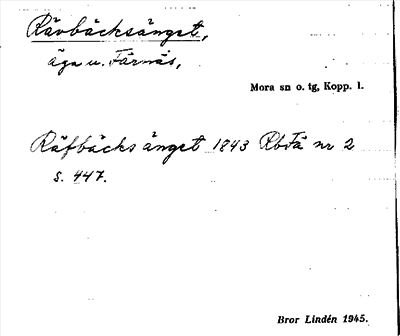 Rävbäcksänget,
äga u. Färnäs,
Mora sn o. tg, Kopp. l.
Räfbäcks änget 1843 RbFä nr 2
s. 447.
Bror Lindén 1945.